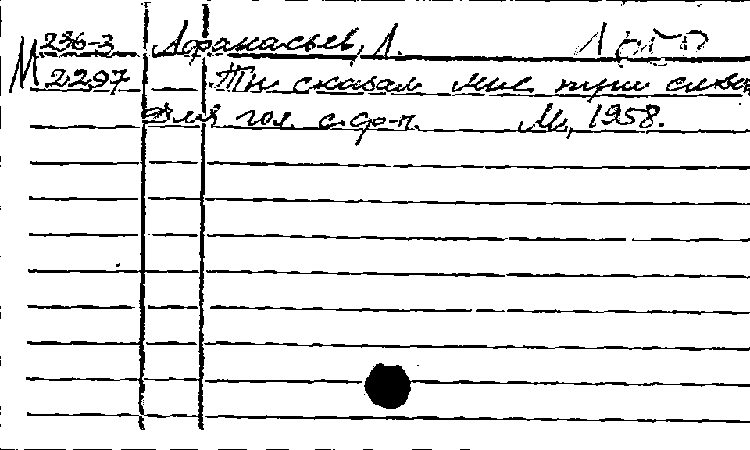 236-3 Афанасьев, Л.
М 2297 Ты сказал мне три слова
Для гол. с ф-п. М., 1958.